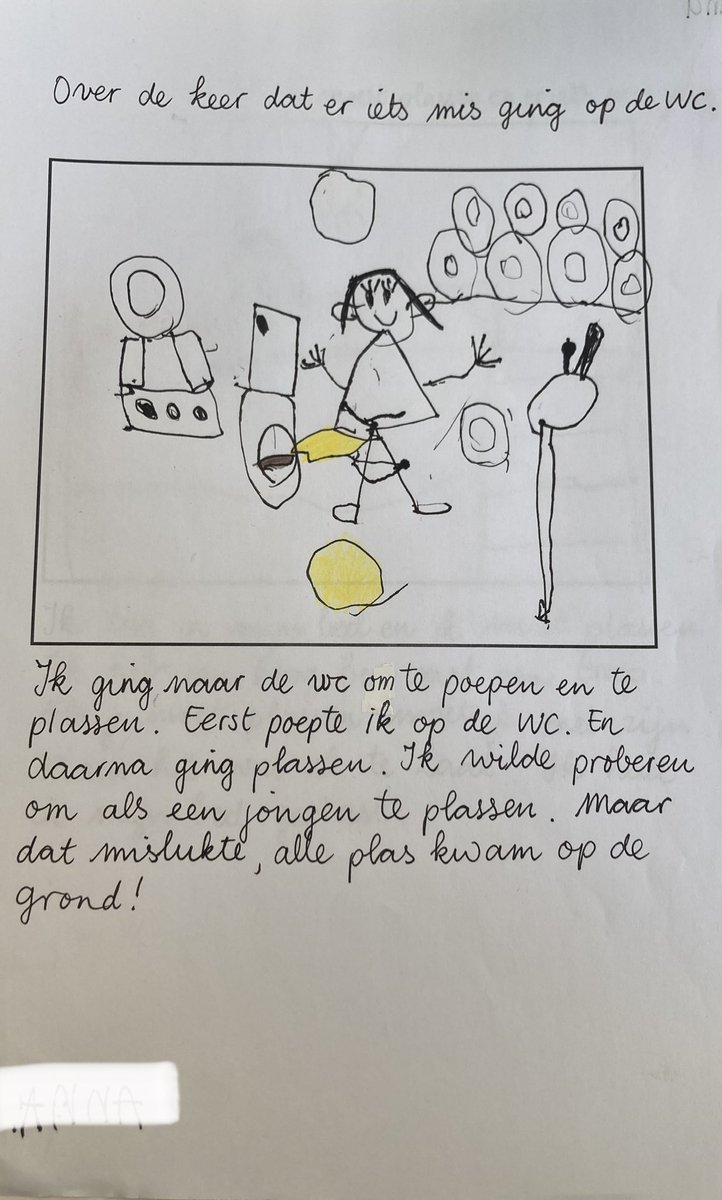 Over de keer dat er iets mis ging op de WC.
Ik ging naar de wc om te poepen en te
plassen. Eerst poepte ik op de WC. En
daarna ging plassen. Ik wilde proberen
om als een jongen te plassen. Maar
dat mislukte, alle plas kwam op de
grond!